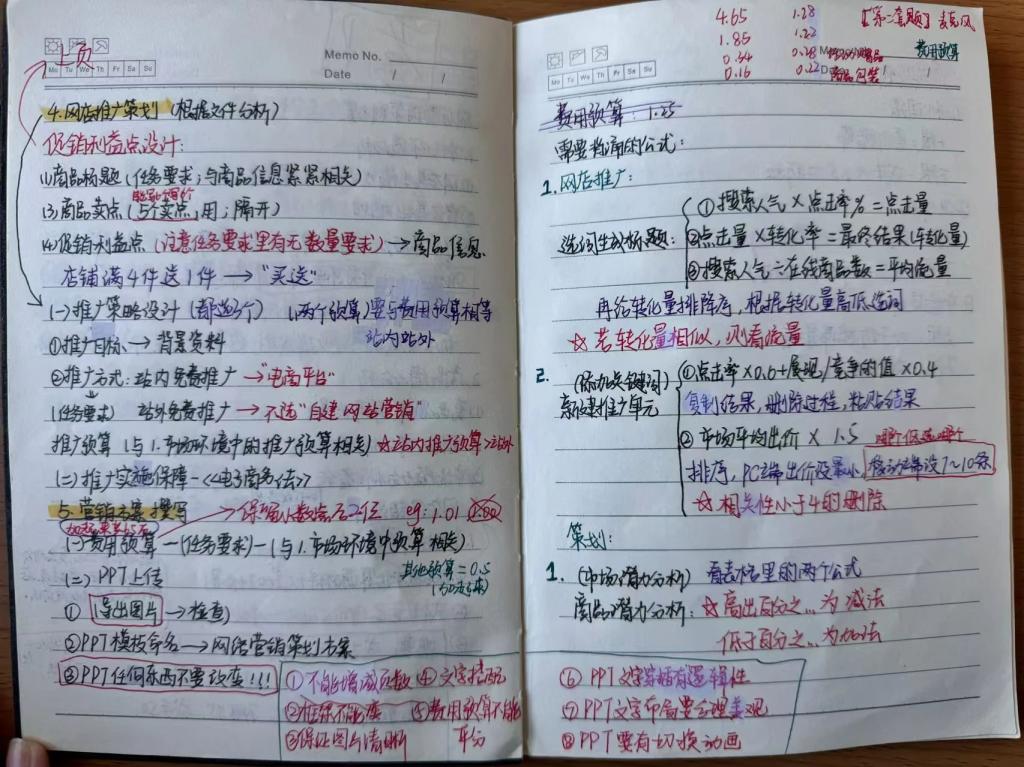 上页
Memo No.
Mo Tu We Th Fr Sa Su
Date / /
4.网店推广策划 (根据文件分析)
促销利益点设计:
(1)商品标题 (任务要求;与商品信息紧紧相关)
(3)商品卖点 (5个卖点,用;隔开)
(4)促销利益点 (注意任务要求里有无数量要求) → 商品信息.
店铺满4件送1件 → "买送"
(一)推广策略设计 (都选3个) (两个预算)要与费用预算相等
站内站外
①推广目标 → 背景资料
②推广方式:站内免费推广 → "电商平台"
(任务要求) 站外免费推广 → 不选"自建网站营销"
推广预算 (与1.市场环境中的推广预算相关) ☆站内推广预算>站外
(二)推广实施保障-<<电子商务法>>
5.营销方案撰写 → 保留小数点后2位 eg:1.01 1.00
(一)费用预算 — (任务要求) — (与1.市场环境中预算相关)
其他预算=0.5
(二) PPT上传
① 导出图片 → 检查)
②PPT模板命名 → 网络营销策划方案
③PPT任何东西不要改变!!!
①不能增减页数 ④文字精炼
②框标不能变 ⑤费用预算不能平分
③保证图片清晰
4.65 1.28 【第二套题】麦克风
1.85 1.22 费用预算
0.34 0.28
0.16 0.22 商品包装
费用预算:1.25
需要背诵的公式:
1.网店推广:
①搜索人气×点击率%=点击量
选词生成标题: ②点击量×转化率=最终结果(转化量)
③搜索人气÷在线商品数=平均流量
再给转化量排降序,根据转化量高低选词
☆若转化量相似,则看流量
2. (添加关键词) ①点击率×0.6+展现/竞争的值×0.4
新建推广单元 复制结果,删除过程,粘贴结果
②市场平均出价×1.5 哪个低选哪个
排序,PC端出价设最小,移动端设7~10条
☆相关性小于4的删除
策划:
1.(市场潜力分析) 看表格里的两个公式
商品潜力分析: ☆高出百分之...为减法
低于百分之...为加法
⑥PPT文字穿插有逻辑性
⑦PPT文字布局要合理美观
⑧PPT要有切换动画